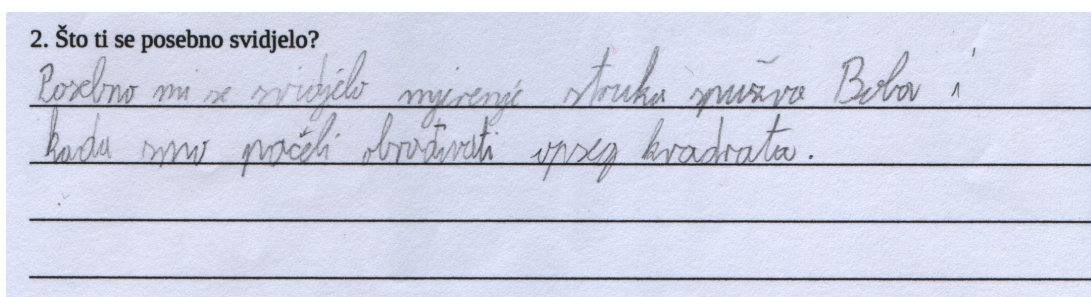 2. Što ti se posebno svidjelo?
Posebno mi se svidjelo mjerenje struka spužva Boba i
kada smo počeli obrađivati opseg kvadrata.